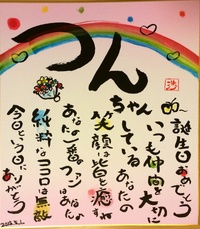 つん
ちゃん
お誕生日おめでとう
いつも仲間を大切に
しているあなたの
笑顔は皆を癒す
あなたの一番のファンはあなた
純粋なココロは無敵
今日という日にありがとう